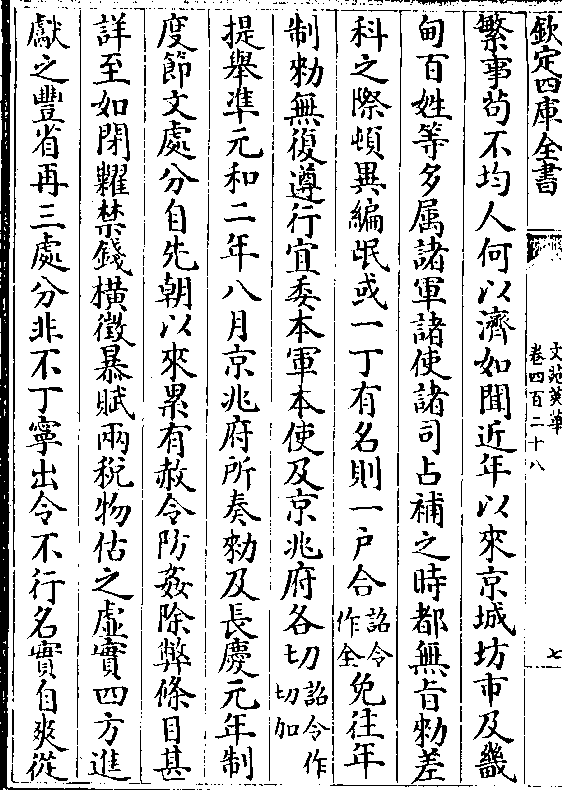 欽定四庫全書
文苑英華
卷四百二十八
七
繁事苟不均人何以濟如聞近年以來京城坊市及畿
甸百姓等多属諸軍諸使諸司占補之時都無旨勅差
科之際頓異編氓或一丁有名則一戶合詔令作全免往年
制勅無復遵行宜委本軍本使及京兆府各切詔令作切加
提舉準元和二年八月京兆府所奏勅及長慶元年制
度節文處分自先朝以來累有赦令防姦除弊條目甚
詳至如閉糴禁錢橫徵暴賦兩税物估之虛實四方進
獻之豐省再三處分非不丁寧出令不行名實自爽從